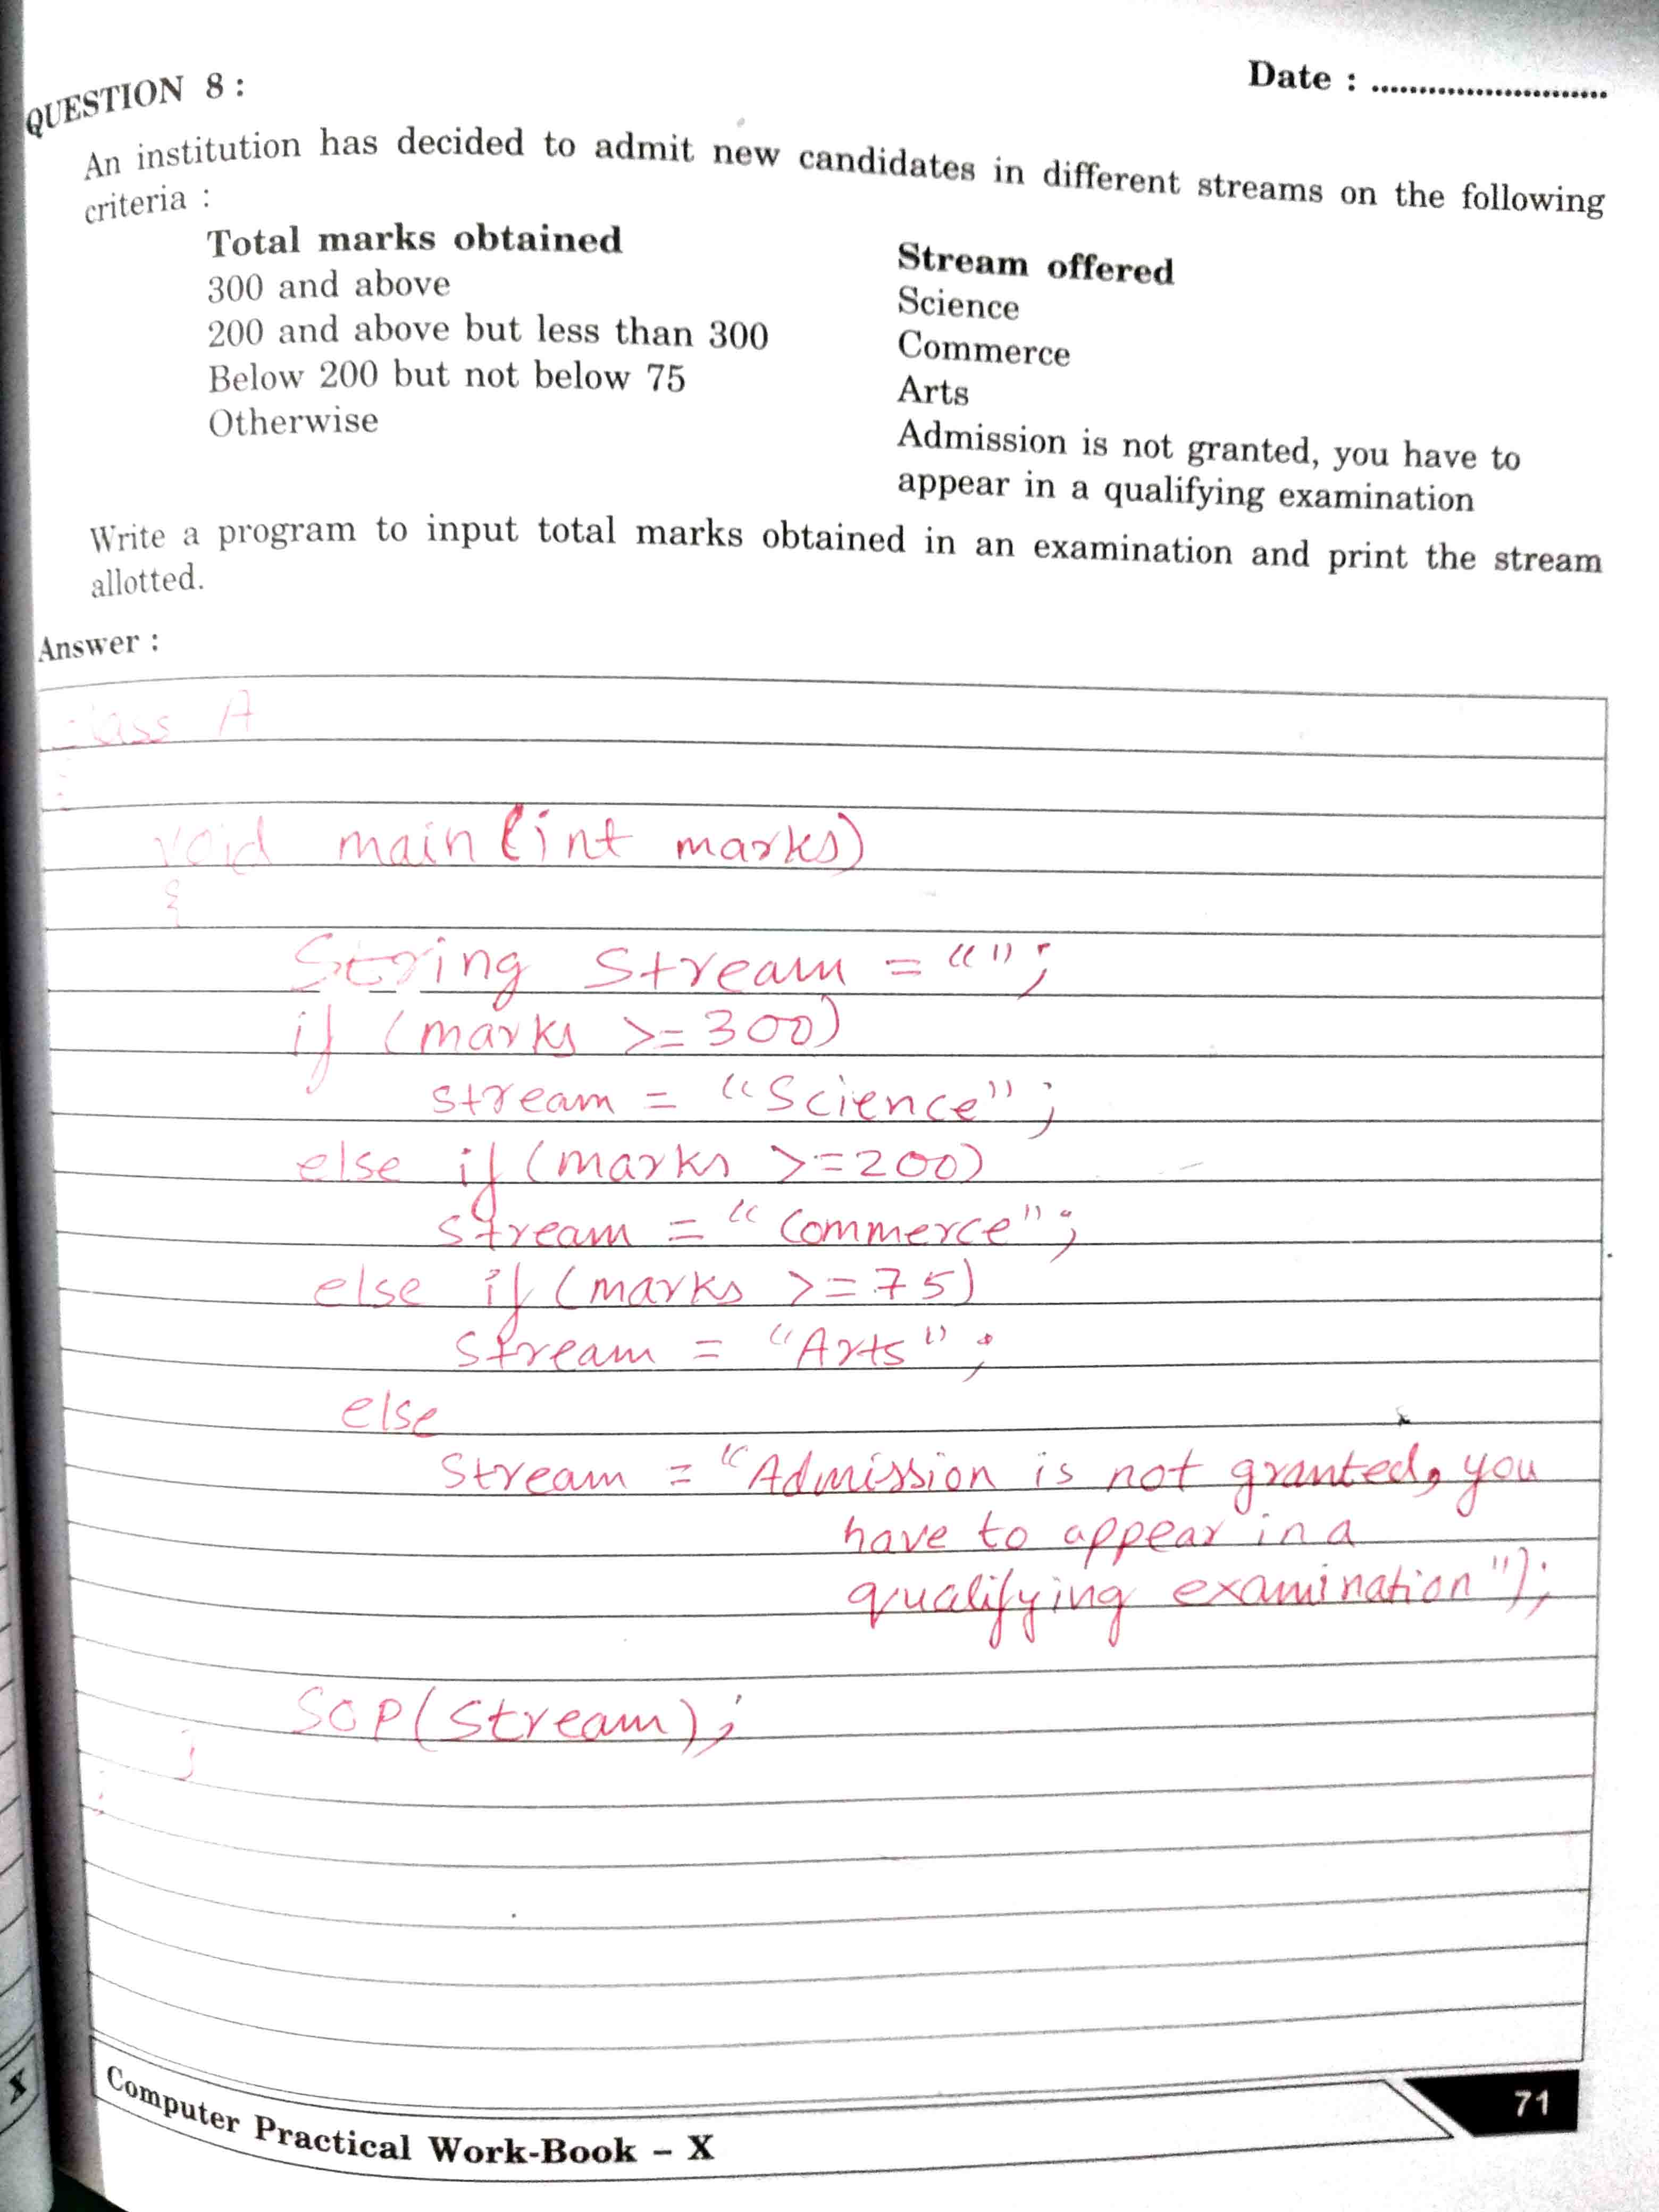 QUESTION 8 :
Date : ..........................
An institution has decided to admit new candidates in different streams on the following
criteria :
Total marks obtained
Stream offered
300 and above
Science
200 and above but less than 300
Commerce
Below 200 but not below 75
Arts
Otherwise
Admission is not granted, you have to
appear in a qualifying examination
Write a program to input total marks obtained in an examination and print the stream
allotted.
Answer :
class A
{
void main (int marks)
{
String Stream = "";
if (marks >=300)
stream = "Science";
else if (marks >=200)
stream = "Commerce";
else if (marks >=75)
stream = "Arts";
else
Stream = "Admission is not granted, you
have to appear in a
qualifying examination");
SOP(Stream);
}
}
Computer Practical Work-Book – X
71
X